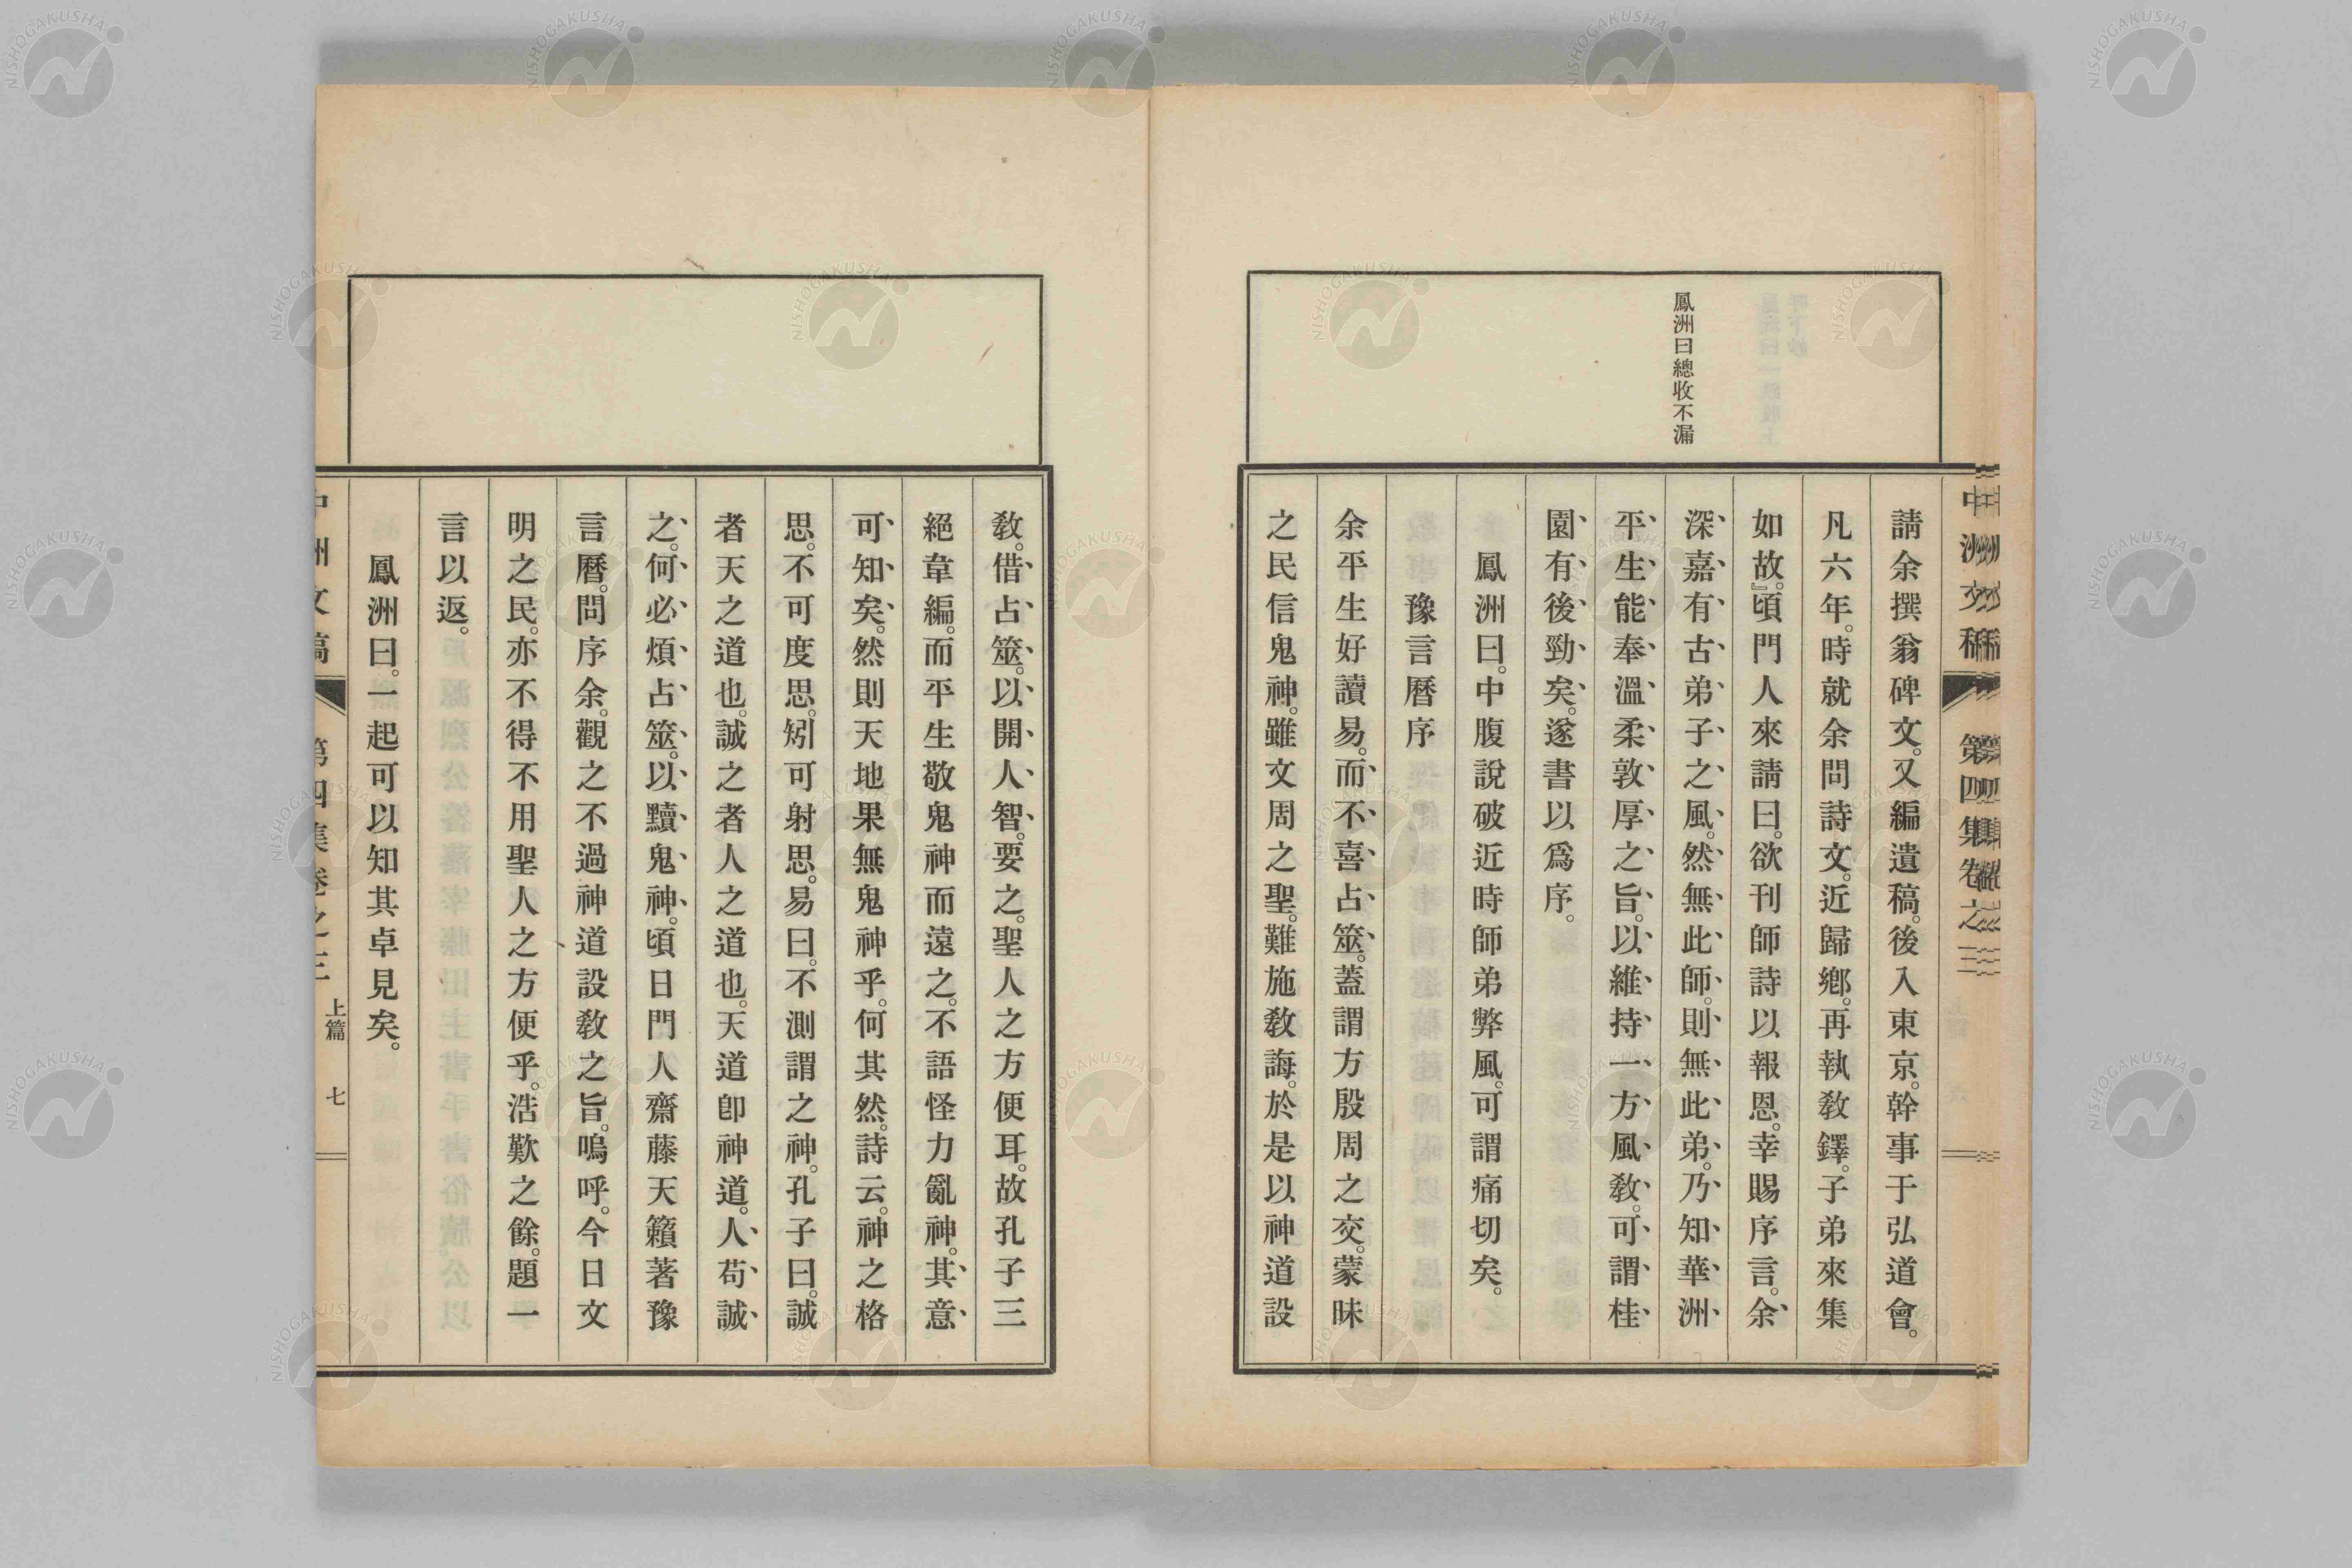 鳳洲曰總收不漏
請余撰翁碑文。又編遺稿。後入東京。幹事于弘道會。
凡六年。時就余問詩文。近歸鄕。再執敎鐸。子弟來集
如故。』頃門人來請曰。欲刊師詩以報恩。幸賜序言。余、
深、嘉、有、古、弟、子、之、風。然、無、此、師。則、無、此、弟。乃、知、華、洲、
平、生、能、奉、溫、柔、敦、厚、之、旨。以、維、持、一、方、風、敎。可、謂、桂、
園、有、後、勁、矣。遂書以爲序。
鳳洲曰。中腹說破近時師弟弊風。可謂痛切矣。
豫言曆序
余平生好讀易。而、不、喜、占、筮。蓋謂方殷周之交。蒙昧
之民信鬼神。雖文周之聖。難施敎誨。於是以神道設
敎。借、占、筮。以、開、人、智。要之。聖人之方便耳。故孔子三
絕韋編。而平生敬鬼神而遠之。不語怪力亂神。其、意、
可、知、矣。然則天地果無鬼神乎。何其然。詩云。神之格
思。不可度思。矧可射思。易曰。不測謂之神。孔子曰。誠
者天之道也。誠之者人之道也。天道卽神道。人、苟、誠、
之。何、必、煩、占、筮。以、黷、鬼、神。頃日門人齋藤天籟著豫
言曆。問序余。觀之不過神道設敎之旨。嗚呼。今日文
明之民。亦不得不用聖人之方便乎。浩歎之餘。題一
言以返。
鳳洲曰。一起可以知其卓見矣。
中洲文稿 第四集卷之三 上篇 七